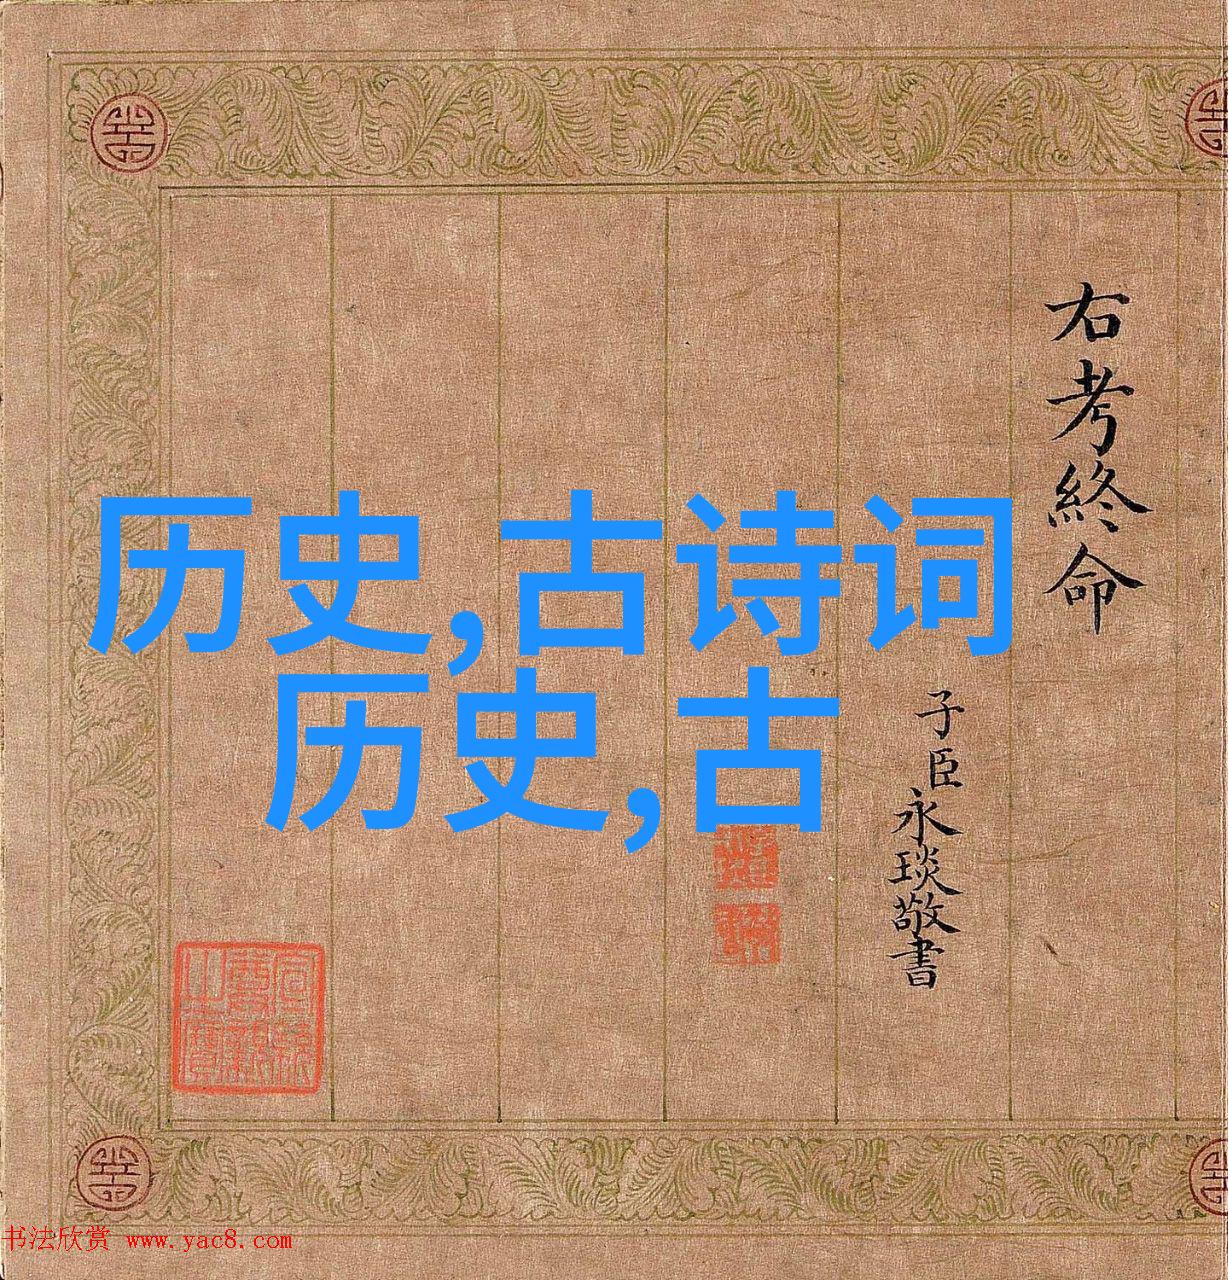 右考終命
子臣永琰敬書
历史,古诗词
历史,古
书法欣赏 www.yac8.com